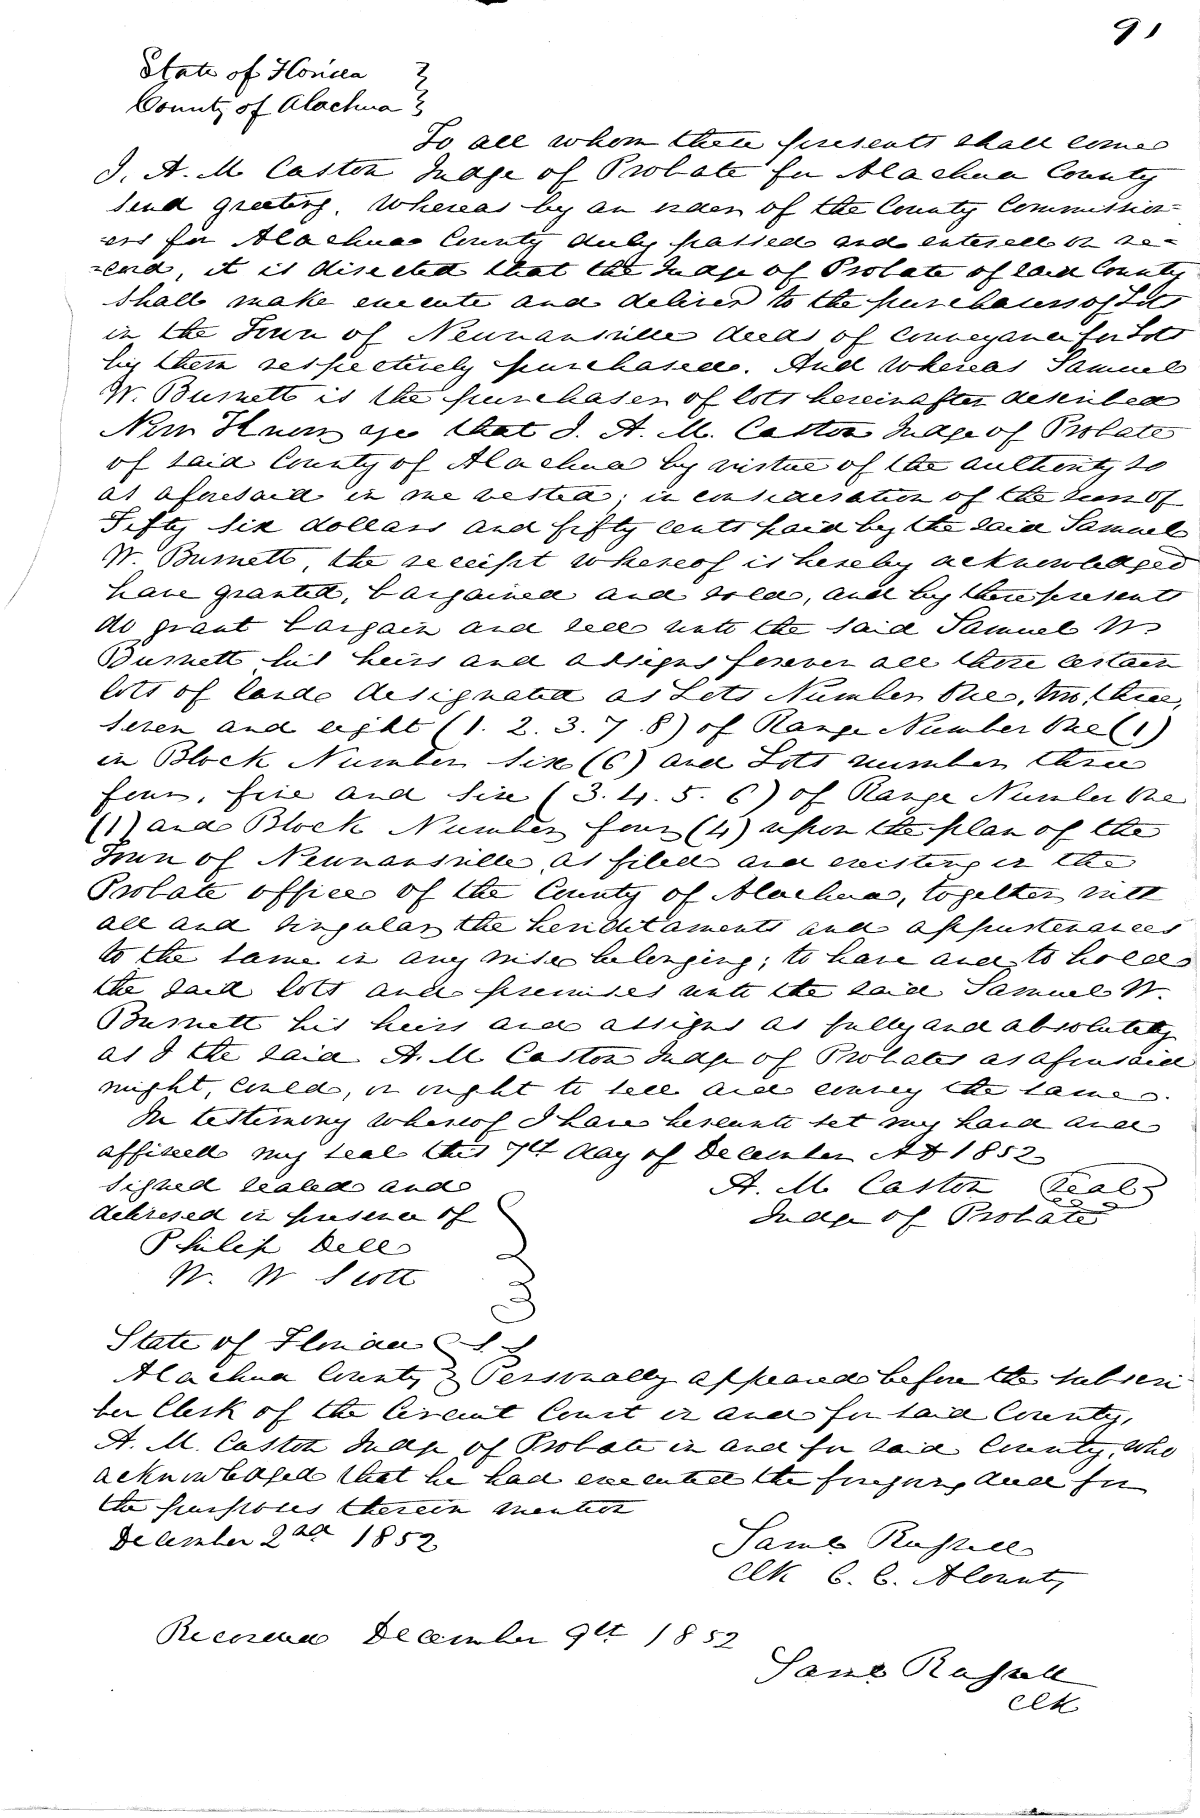 91
State of Florida
County of Alachua
To all whom these presents shall come
I, A. M. Caston Judge of Probate for Alachua County
send greeting. Whereas by an order of the County Commission=
=ers for Alachua County duly passed and entered on re=
=cord, it is directed that the Judge of Probate of said County
shall make execute and deliver to the purchasers of Lots
in the Town of Newnansville deeds of conveyance for Lots
by them respectively purchased. And whereas Samuel
W. Burnett is the purchaser of lots hereinafter described
Now Know ye that I. A. M. Caston Judge of Probate
of said County of Alachua by virtue of the authority so
as aforesaid in me vested; in consideration of the sum of
Fifty six dollars and fifty cents paid by the said Samuel
W. Burnett, the receipt whereof is hereby acknowledged
have granted, bargained and sold, and by these presents
do grant bargain and sell unto the said Samuel W
Burnett his heirs and assigns forever all those certain
lots of land designated as Lots Number One, two, three,
seven and eight (1. 2. 3. 7. 8) of Range Number One (1)
in Block Number six (6) and Lots number three
four, five and six (3. 4. 5. 6) of Range Number One
(1) and Block Number four (4) upon the plan of the
Town of Newnansville, as filed and existing in the
Probate office of the County of Alachua, together with
all and singular the heriditaments and appurtenances
to the same in any wise belonging; to have and to hold
the said lots and premises unto the said Samuel W.
Burnett his heirs and assigns as fully and absolutely
as I the said A. M Caston Judge of Probate as aforesaid
might, could, or ought to sell and convey the same.
In testimony whereof I have hereunto set my hand and
affixed my seal this 7th day of December AD 1852
signed sealed and A. M Caston Seal
delivered in presence of Judge of Probate
Philip Dell
W. W Scott
State of Florida S. S
Alachua County Personally appeared before the subscri
ber Clerk of the Circuit Court in and for said County,
A. M. Caston Judge of Probate in and for said County, who
acknowledged that he had executed the foregoing deed for
the purposes therein mention
December 2nd 1852 Saml Russell
Clk C. C. A County
Recorded December 9th 1852
Saml Russell
Clk